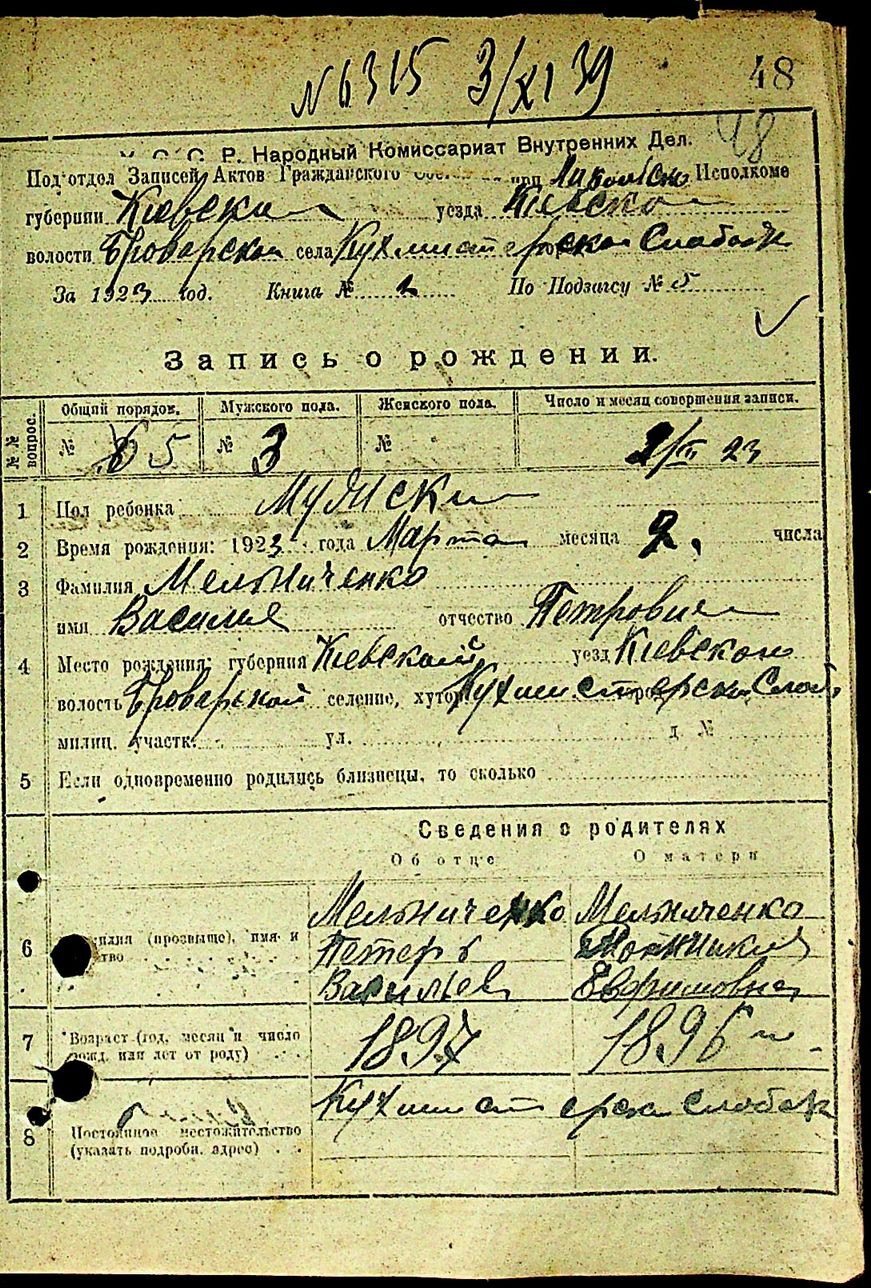 N 6315 3/XI 39 48
48
У. С. С. Р. Народный Комиссариат Внутренних Дел.
Подотдел Записей Актов Гражданского при Исполкоме
губернии Киевской уезда Киевской
волости Броварской села Кухмистерской Слободк
За 1923 год. Книга № 1 По Подзагсу № 5
Запись о рождении.
№№ вопрос. Общий порядов. Мужского пола. Женского пола. Число и месяц совершения записи.
№ 5 № 3 № 2/III 23
1 Пол ребенка Мужски
2 Время рождения: 1923 года Марта месяца 2. числа
3 Фамилия Мельниченко
имя Василия отчество Петрович
4 Место рождения: губерния Киевской уезд Киевской
волость Броварской селение, хутор Кухмистерской Слоб.
милиц. участк. ул. д №
5 Если одновременно родились близнецы, то сколько
Сведения о родителях
Об отце О матери
Мельниченко Мельниченко
6 (прозвище), имя и Петеръ
Васильев Евфимовна
7 Возраст (год, месяц и число рожд. или лет от роду) 1897 1896
Кухмистерск Слободк
8 Постоянное местожительство
(указать подробн. адрес)